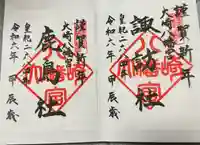 謹賀新年
諏訪社
大崎八幡宮
皇紀二六八四年
令和六年 甲辰歳
謹賀新年
鹿島社
大崎八幡宮
皇紀二六八四年
令和六年 甲辰歳